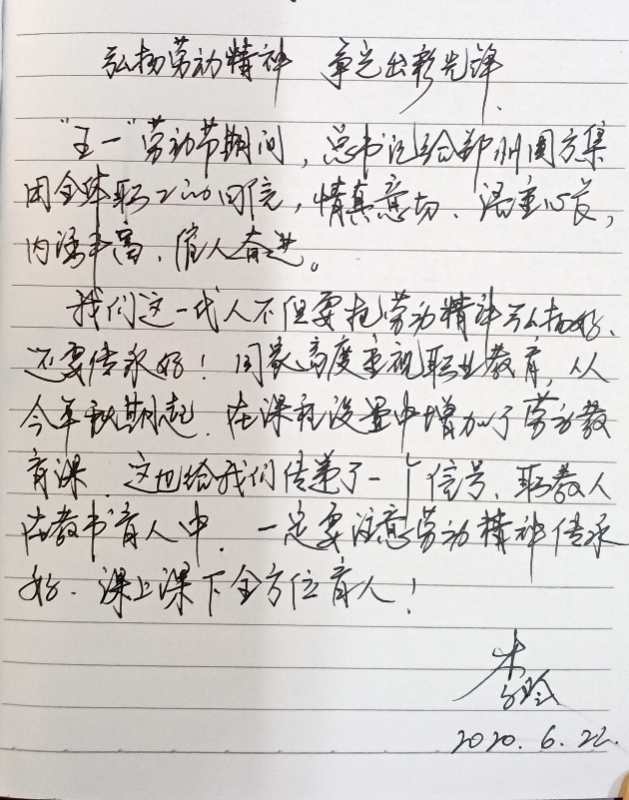 弘扬劳动精神 争先出彩先锋
"五一"劳动节期间,总书记给郑州圆方集
团全体职工的回信,情真意切、语重心长,
内涵丰富、催人奋进。
我们这一代人不但要把劳动精神弘扬好、
还要传承好!国家高度重视职业教育,从
今年秋期起、在课程设置中增加了劳动教
育课、这也给我们传递了一个信号、职教人
在教书育人中、一定要注意劳动精神传承
好、课上课下全方位育人!
2020.6.22